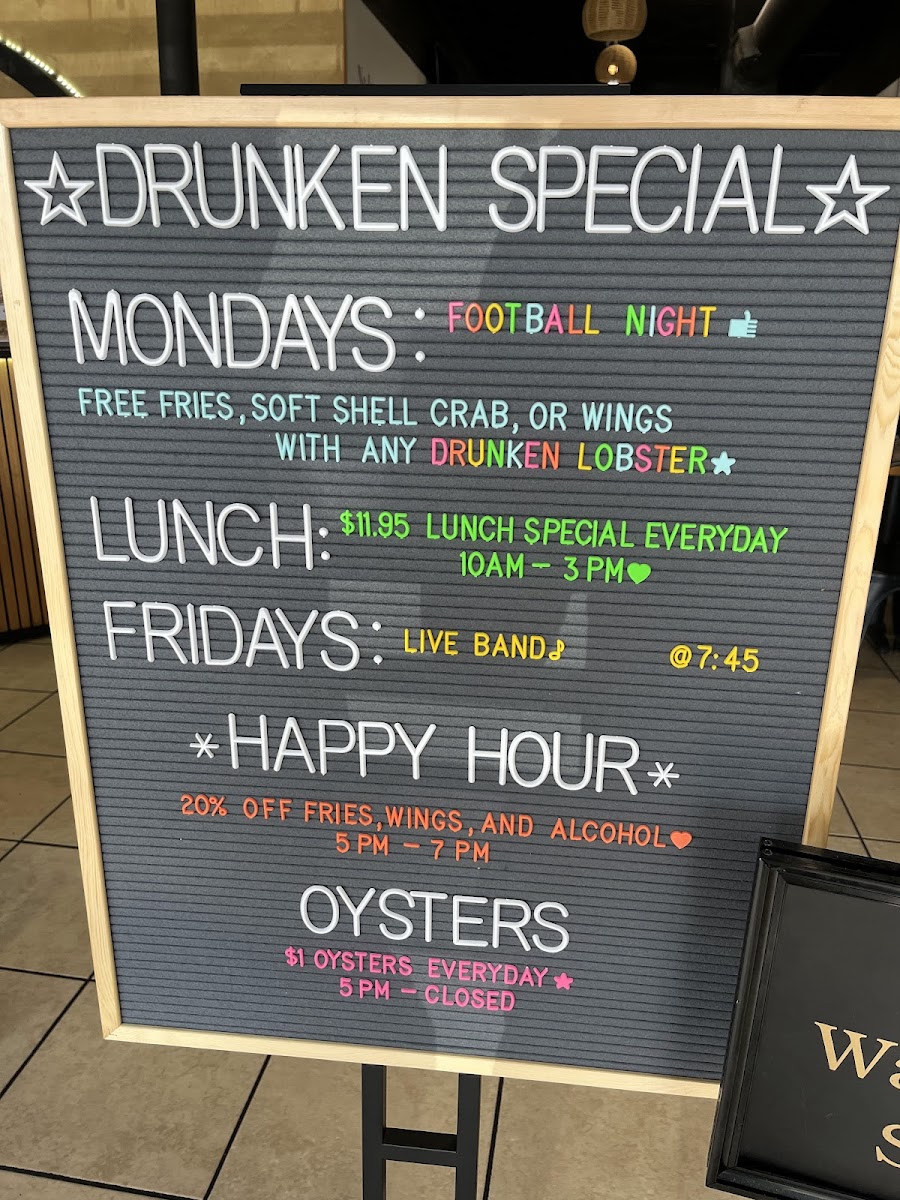 ☆DRUNKEN SPECIAL☆
MONDAYS: FOOTBALL NIGHT
FREE FRIES, SOFT SHELL CRAB, OR WINGS
WITH ANY DRUNKEN LOBSTER★
LUNCH: $11.95 LUNCH SPECIAL EVERYDAY
10AM - 3PM♥
FRIDAYS: LIVE BAND♪ @7:45
*HAPPY HOUR*
20% OFF FRIES, WINGS, AND ALCOHOL♥
5 PM - 7 PM
OYSTERS
$1 OYSTERS EVERYDAY★
5 PM - CLOSED